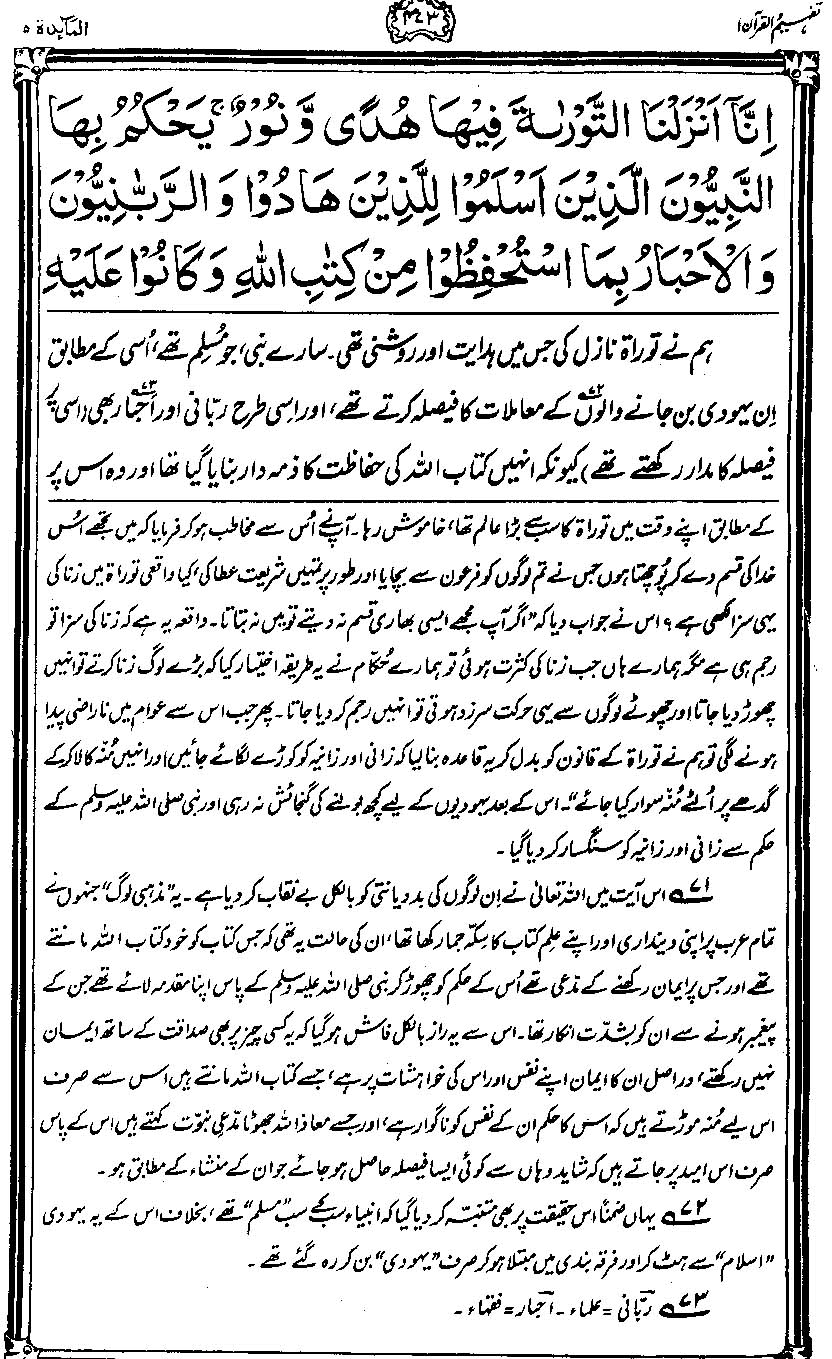 تفہیم القرآن ۱
۴۷۳
المآئدۃ ۵
اِنَّآ اَنْزَلْنَا التَّوْرٰىةَ فِيْهَا هُدًى وَّ نُوْرٌ ۚ يَحْكُمُ بِهَا
النَّبِيُّوْنَ الَّذِيْنَ اَسْلَمُوْا لِلَّذِيْنَ هَادُوْا وَ الرَّبّٰنِيُّوْنَ
وَ الْاَحْبَارُ بِمَا اسْتُحْفِظُوْا مِنْ كِتٰبِ اللّٰهِ وَ كَانُوْا عَلَيْهِ
ہم نے توراۃ نازل کی جس میں ہدایت اور روشنی تھی۔ سارے نبی، جو مُسلِم تھے، اُسی کے مطابق
اِن یہودی بن جانے والوں۷۲ کے معاملات کا فیصلہ کرتے تھے، اور اِسی طرح ربّانی اور اَحبار۷۳ بھی (اسی پر
فیصلہ کا مدار رکھتے تھے) کیونکہ انہیں کتاب اللہ کی حفاظت کا ذمہ دار بنایا گیا تھا اور وہ اس پر
کے مطابق اپنے وقت میں توراۃ کا سب سے بڑا عالم تھا، خاموش رہا۔ آپ نے اُس سے مخاطب ہو کر فرمایا کہ میں تجھے اُس
خدا کی قسم دے کر پُوچھتا ہوں جس نے تم لوگوں کو فرعون سے بچایا اور طور پر تمہیں شریعت عطا کی، کیا واقعی توراۃ میں زنا کی
یہی سزا لکھی ہے؟ اس نے جواب دیا کہ ”اگر آپ مجھے ایسی بھاری قسم نہ دیتے تو میں نہ بتاتا۔ واقعہ یہ ہے کہ زنا کی سزا تو
رجم ہی ہے مگر ہمارے ہاں جب زنا کی کثرت ہوئی تو ہمارے حُکّام نے یہ طریقہ اختیار کیا کہ بڑے لوگ زنا کرتے تو انہیں
چھوڑ دیا جاتا اور چھوٹے لوگوں سے یہی حرکت سرزد ہوتی تو انہیں رجم کر دیا جاتا۔ پھر جب اس سے عوام میں ناراضی پیدا
ہونے لگی تو ہم نے توراۃ کے قانون کو بدل کر یہ قاعدہ بنا لیا کہ زانی اور زانیہ کو کوڑے لگائے جائیں اور انہیں مُنہ کالا کر کے
گدھے پر اُلٹے مُنہ سوار کیا جائے“۔ اس کے بعد یہودیوں کے لیے کچھ بولنے کی گنجائش نہ رہی اور نبی صلی اللہ علیہ وسلم کے
حکم سے زانی اور زانیہ کو سنگسار کر دیا گیا۔
۷۱ اس آیت میں اللہ تعالیٰ نے اِن لوگوں کی بددیانتی کو بالکل بے نقاب کر دیا ہے۔ یہ ”مذہبی لوگ“ جنہوں نے
تمام عرب پر اپنی دینداری اور اپنے علمِ کتاب کا سِکّہ جما رکھا تھا، ان کی حالت یہ تھی کہ جس کتاب کو خود کتاب اللہ مانتے
تھے اور جس پر ایمان رکھنے کے مدّعی تھے اُس کے حکم کو چھوڑ کر نبی صلی اللہ علیہ وسلم کے پاس اپنا مقدمہ لائے تھے جن کے
پیغمبر ہونے سے ان کو بشدّت انکار تھا۔ اس سے یہ راز بالکل فاش ہو گیا کہ یہ کسی چیز پر بھی صداقت کے ساتھ ایمان
نہیں رکھتے، دراصل ان کا ایمان اپنے نفس اور اس کی خواہشات پر ہے، جسے کتاب اللہ مانتے ہیں اس سے صرف
اس لیے مُنہ موڑتے ہیں کہ اس کا حکم ان کے نفس کو ناگوار ہے، اور جسے معاذ اللہ جھوٹا مدّعی نبوّت کہتے ہیں اس کے پاس
صرف اس امید پر جاتے ہیں کہ شاید وہاں سے کوئی ایسا فیصلہ حاصل ہو جائے جو ان کے منشاء کے مطابق ہو۔
۷۲ یہاں ضمناً اس حقیقت پر بھی متنبّہ کر دیا گیا کہ انبیاء سب کے سب ”مسلم“ تھے، بخلاف اس کے یہ یہودی
”اسلام“ سے ہٹ کر اور فرقہ بندی میں مبتلا ہو کر صرف ”یہودی“ بن کر رہ گئے تھے۔
۷۳ ربّانی = علماء۔ احبار = فقہاء۔